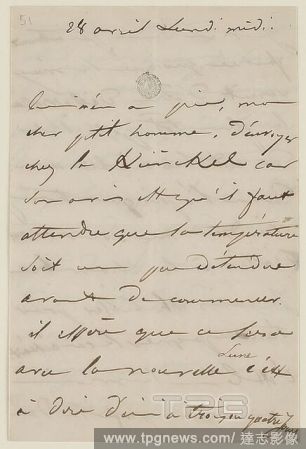 51
28 avril Lundi midi.
mon
cher ptit homme, d'envoyer
chez la Künckel car
son avis est qu'il faut
attendre que la température
soit un peu détendue
avant de commencer.
il espère que ce sera
avec la nouvelle Lune c'est
à dire d'ici à trois ou quatre jours
TPG
www.tpgnews.com / 達志影像